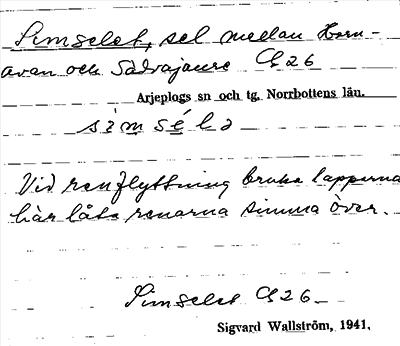 Simselet, sel mellan Horn-
avan och Sädvajaure C 26
Arjeplogs sn och tg. Norrbottens län.
s i m s é l ə
Vid renflyttning bruka lapparna
här låta renarna simma över.
Simselet C 26
Sigvard Wallström, 1941.